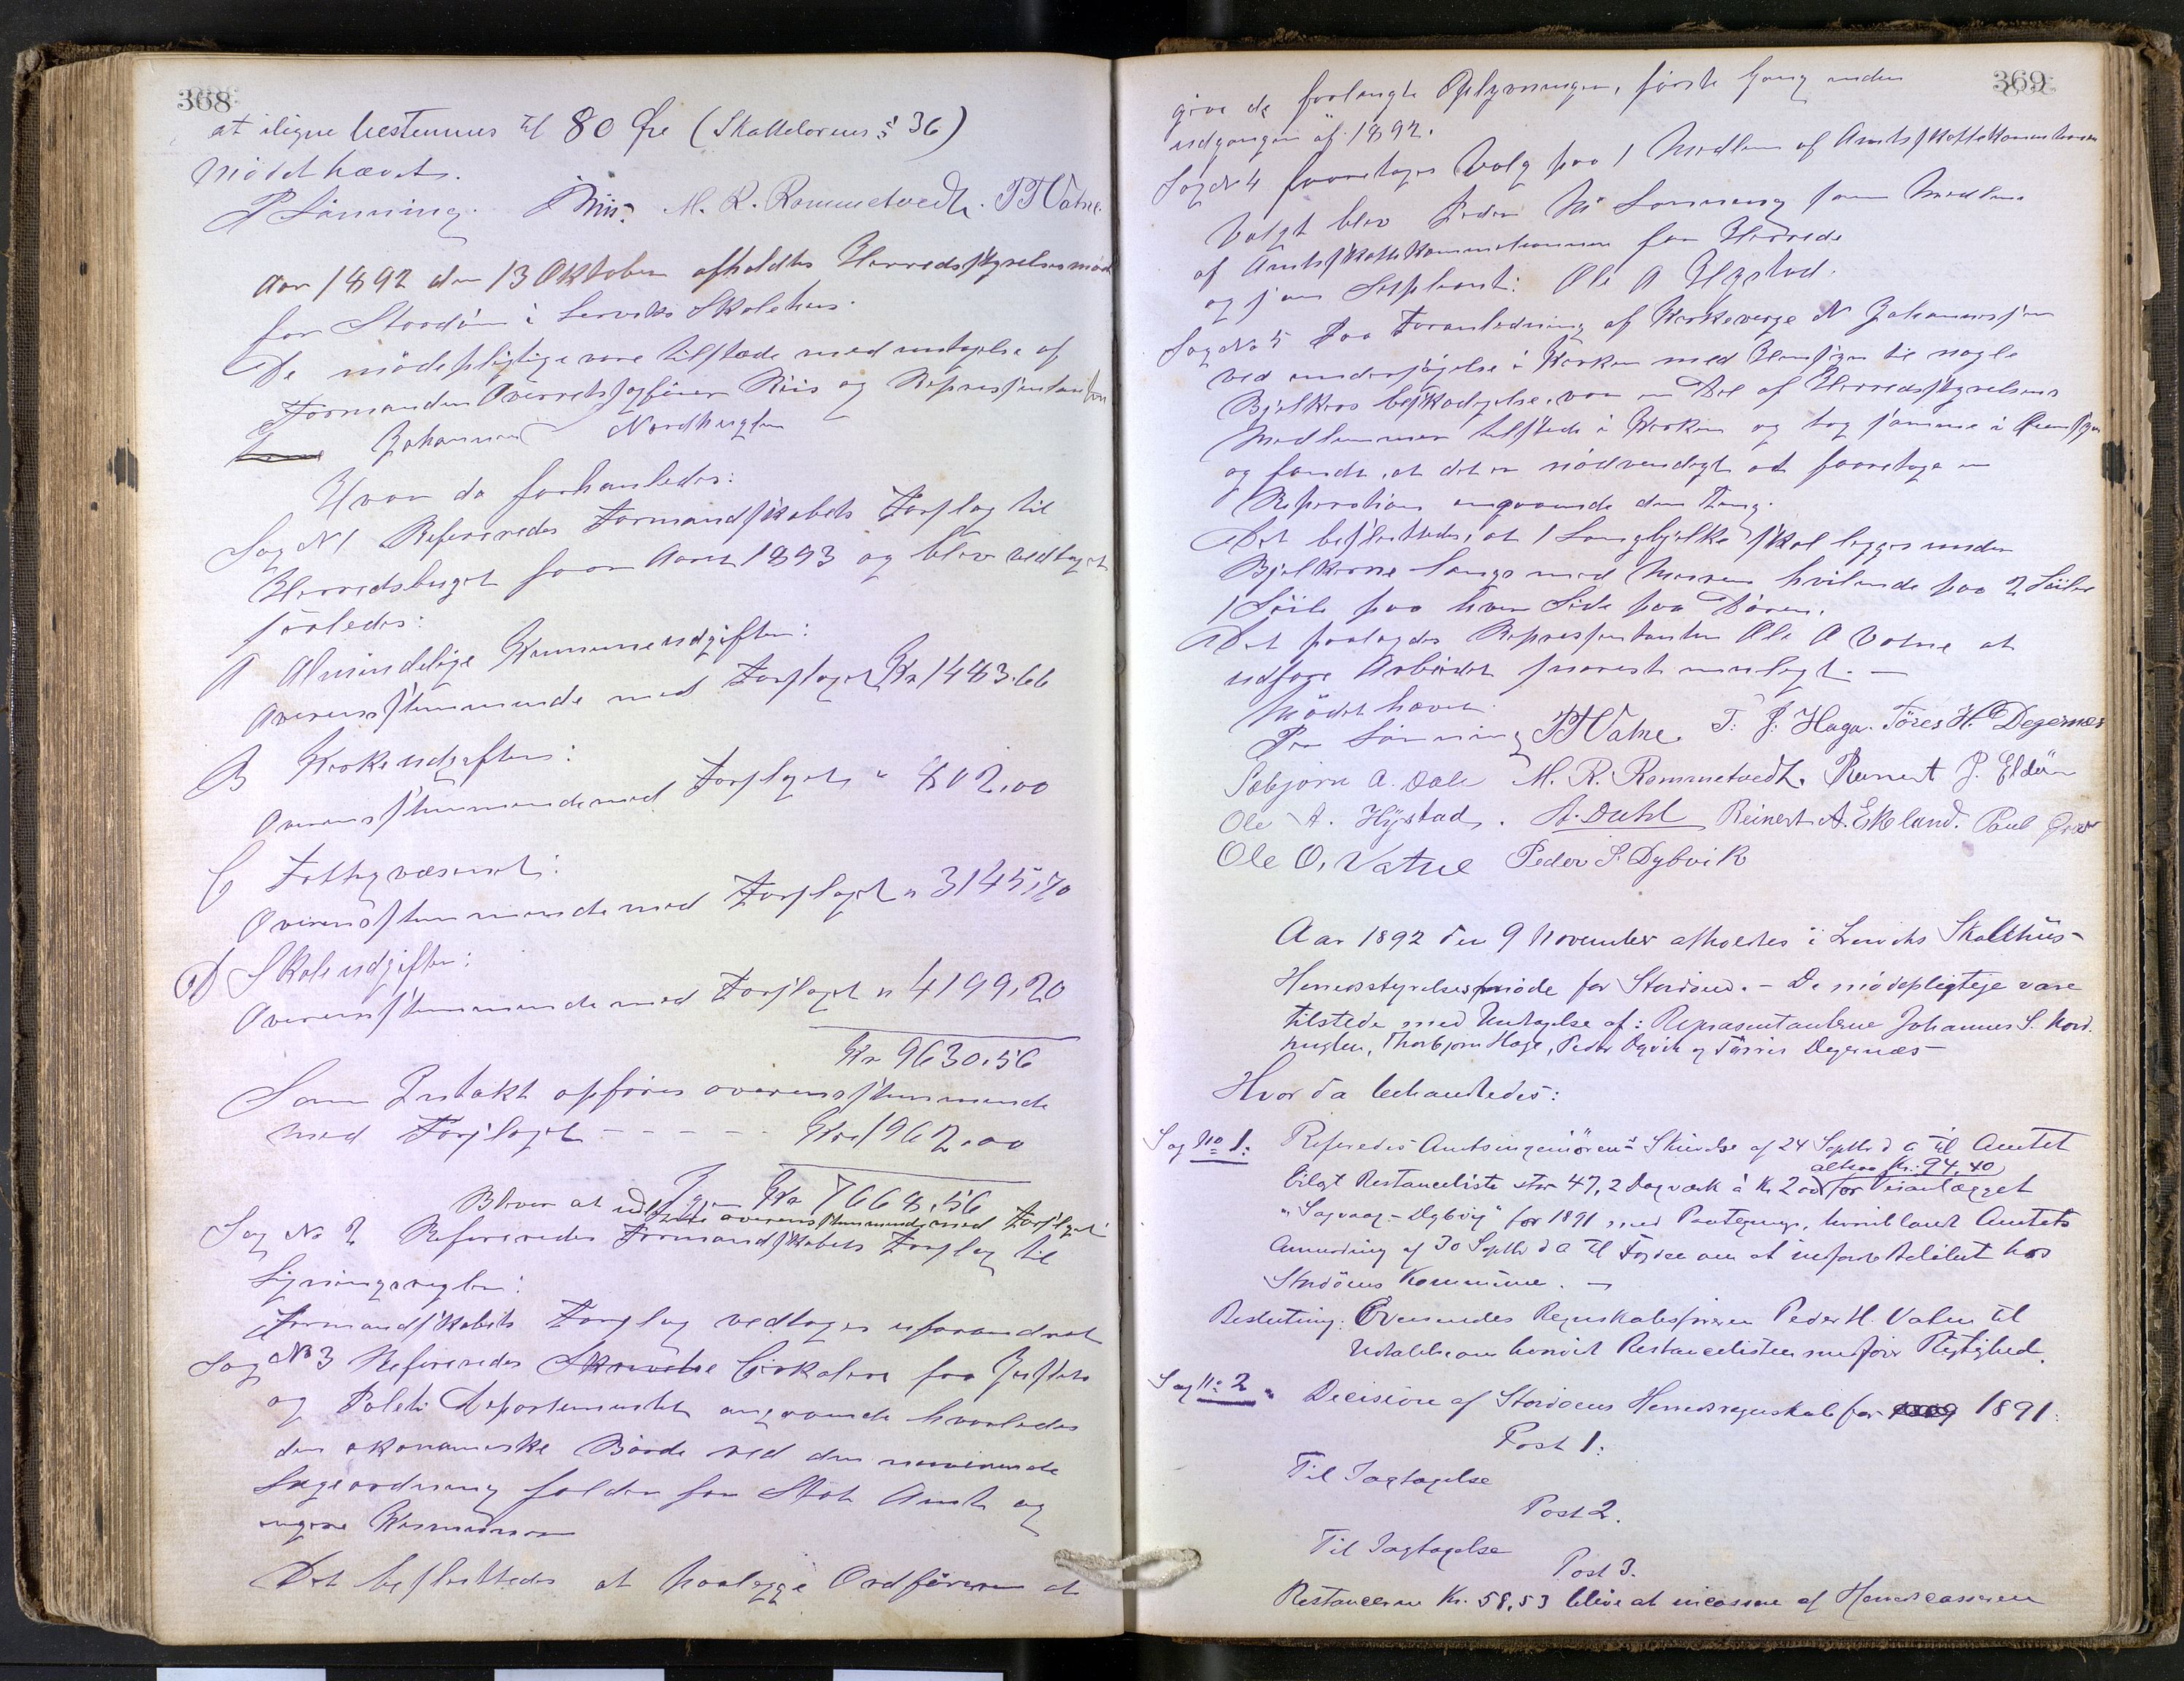 368
at iligne bestemmes til 80 Øre (Skattelovens § 36)
Mödet hævet.
P Lönning. Riis. M. R. Rommetvedt. P H Vatne.
Aar 1892 den 13 Oktober afholdtes Herredsstyrelsesmöde
for Stordöen i Lerviks Skolehus.
De mödepligtige vare tilstæde med undtagelse af
Formanden Overretssagförer Riis og Repræsentanten
Johannes Nordhuglen
Hvor da forhanledes:
Sag N 1 Refereredes Formandskabets Forslag til
Herredsbuget for Aaret 1893 og blev vedtaget
saaledes:
A Almindelige Kommuneudgifter:
Overensstemmende med Forslaget Kr 1483.66
B Kirkeudgifter:
Overensstemmende med Forslaget " 802,00
C Fattigvæsenet:
Overensstemmende med Forslaget " 3145,70
D Skoleudgifter:
Overensstemmende med Forslaget " 4199,20
Kr 9630,56
Som Indtækt opföres overensstemmende
med Forslaget - - - - - Kr 1962,00
Bliver at udligne Kr 7668,56
overensstemmende med Forslaget
Sag No 2 Refereredes Formandskabets Forslag til
Ligningsregler:
Formandskabets Forslag vedtoges uforandret
Sag No 3 Refereredes Skrivelse Cirkulære fra Justits
og Politi Departementet angaaende hvorledes
den økonomiske Börde ved den nuværende
Lægeordning falder for Stat Amt og
Kommuner
Det besluttedes at paalægge Ordföreren at
369
give de forlangte Oplysninger, förste Gang inden
udgangen af 1892.
Sag No 4 foretoges Valg paa 1 Medlem af Amtsskattekommissionen
Valgt blev Peder Lönning som Medlem
af Amtsskattekommissionen for Herredet
og som Supleant: Ole A Hystad.
Sag No 5 Paa Foranledning af Kirkeverge N Johannessen
ved undersögelse i Kirken med Hensyn til nogle
Bjelkers beskadigelse, var en Del af Herredsstyrelsens
Medlemmer tilstede i Kirken og tog samme i Öiensyn
og fandt, at det er nödvendigt at foretage en
Reperation angaaende den Ting.
Det besluttedes, at 1 Langbjelke skal legges under
Bjelkerne langs med Muren hvilende paa 2 Söiler
1 Söile paa hver Side paa Dören.
Det paalagdes Repræsentanten Ole O Vatne at
udföre Arbeidet snarest muligt. —
Mödet hævet.
Per Lönning P H Vatne. T. J. Haga. Töres H. Degernes
Sæbjörn A. Dale M. R. Rommetvedt. Reinert J. Eldöen
Ole A. Hÿstad. A. Dahl Reinert A. Eskeland. Paul
Ole O. Vatne Peder S. Dybvik
Aar 1892 den 9 November afholdtes i Lerviks Skolehus
Herredsstyrelsesmöde for Stordöen. - De mödepligtige vare
tilstede med Undtagelse af: Repræsentanterne Johannes S. Nord-
huglen, Thorbjörn Haga, Peder Dybvik og Törris Degernæs
Hvor da behandledes:
Sag No 1: Refereredes Amtsingeniörens Skrivelse af 24 Septbr d A til Amtet
altsaa Kr: 94,40
bilagt Restanceliste stor 47,2 Dagværk á Kr 2 00 for Veianlægget
"Sagvaag-Dybvig" for 1891 med Paategninger, hvoriblandt Amtets
Anmodning af 30 Septbr d A til Fogden om at indfordre Belöbet hos
Stordöens Kommune. —
Beslutning: Oversendes Regnskabsföreren Peder H. Vatne til
Udtalelse om hvorvidt Restancelisten medförer Rigtighed.
Sag No 2. Decisioner af Stordöens Herredsregnskab for 1891:
Post 1:
Til Iagtagelse
Post 2.
Til Iagtagelse
Post 3.
Restancerne Kr. 58,53 blive at incassere af Herredscassereren